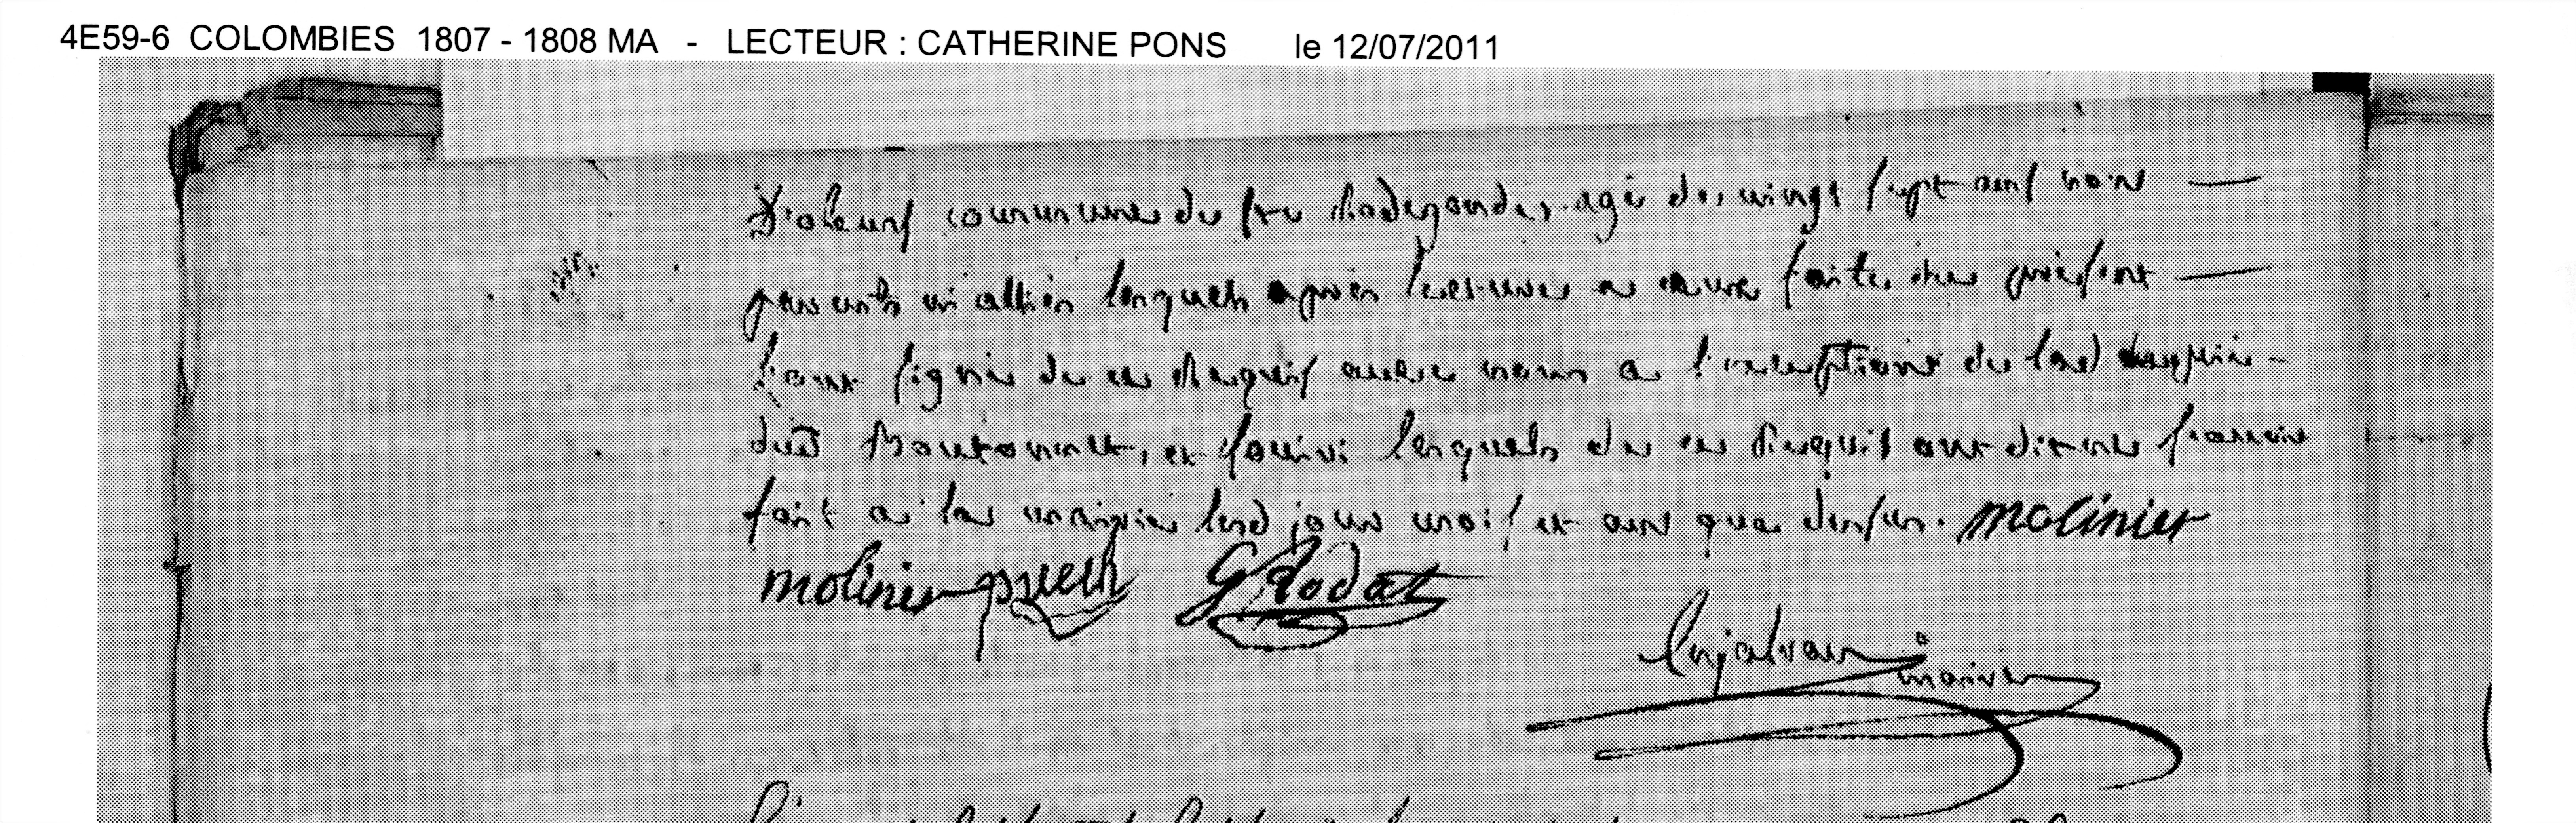 4E59-6 COLOMBIES 1807 - 1808 MA - LECTEUR : CATHERINE PONS le 12/07/2011
D'oleuns commune de ste Radegonde, agé de vingt sept ans non
parents ni alliés lesquels après lecture a eux faite du présent
l'ont signé de ce Requis avec nous a l'exception du
dud Boutonnet, et lesquels de ce Requis ont dit ne scavoir
fait a la mairie lesd jour mois et ans que dessus. molinier
molinier puech G Rodat
Enjalran maire